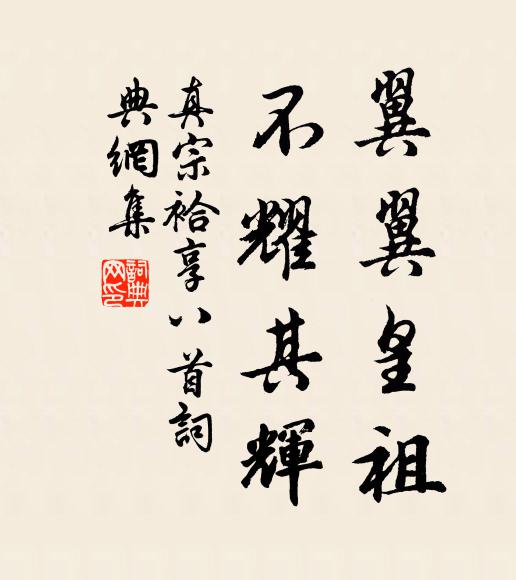 翼翼皇祖
不耀其輝
真宗袷享八首詞
典網集
詞典
网印